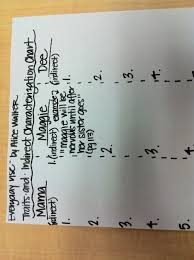 Everyday Use · by Alice Walker
Traits and Indirect Characterization Chart
Mama Maggie Dee
(indirect) (indirect) example: (indirect)
1. 1. 1.
"Maggie will be
nervous until after
her sister goes"
(pg 113)
2. 2. 2.
3. 3. 3.
4. 4. 4.
5.